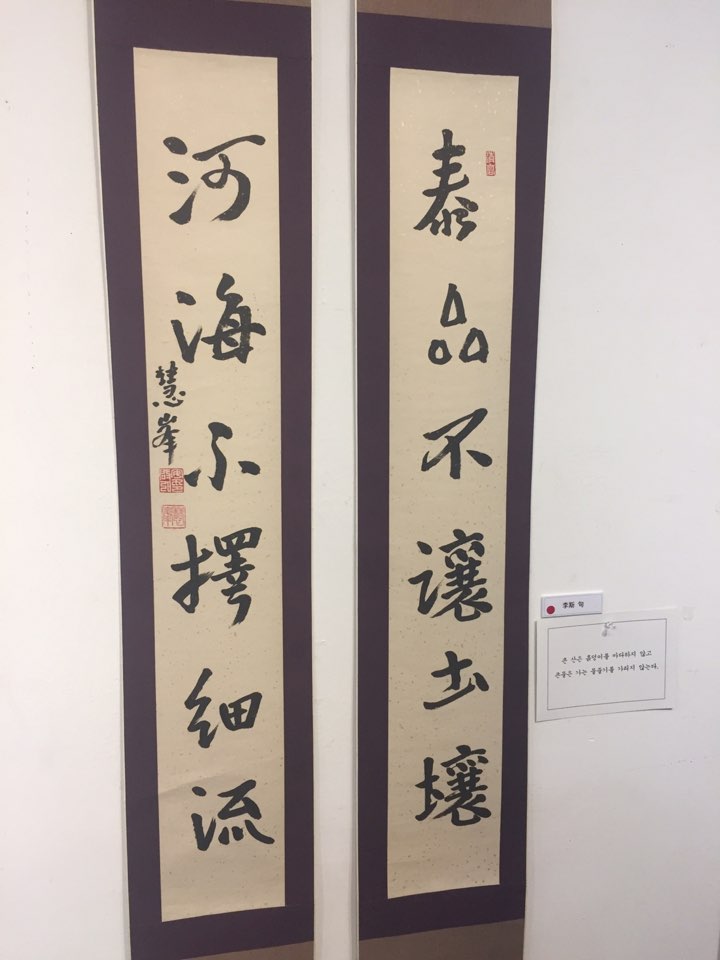 泰山不讓土壤
河海不擇細流
慧峯
李斯 句
큰 산은 흙덩이를 마다하지 않고
큰물은 가는 물줄기를 가리지 않는다.